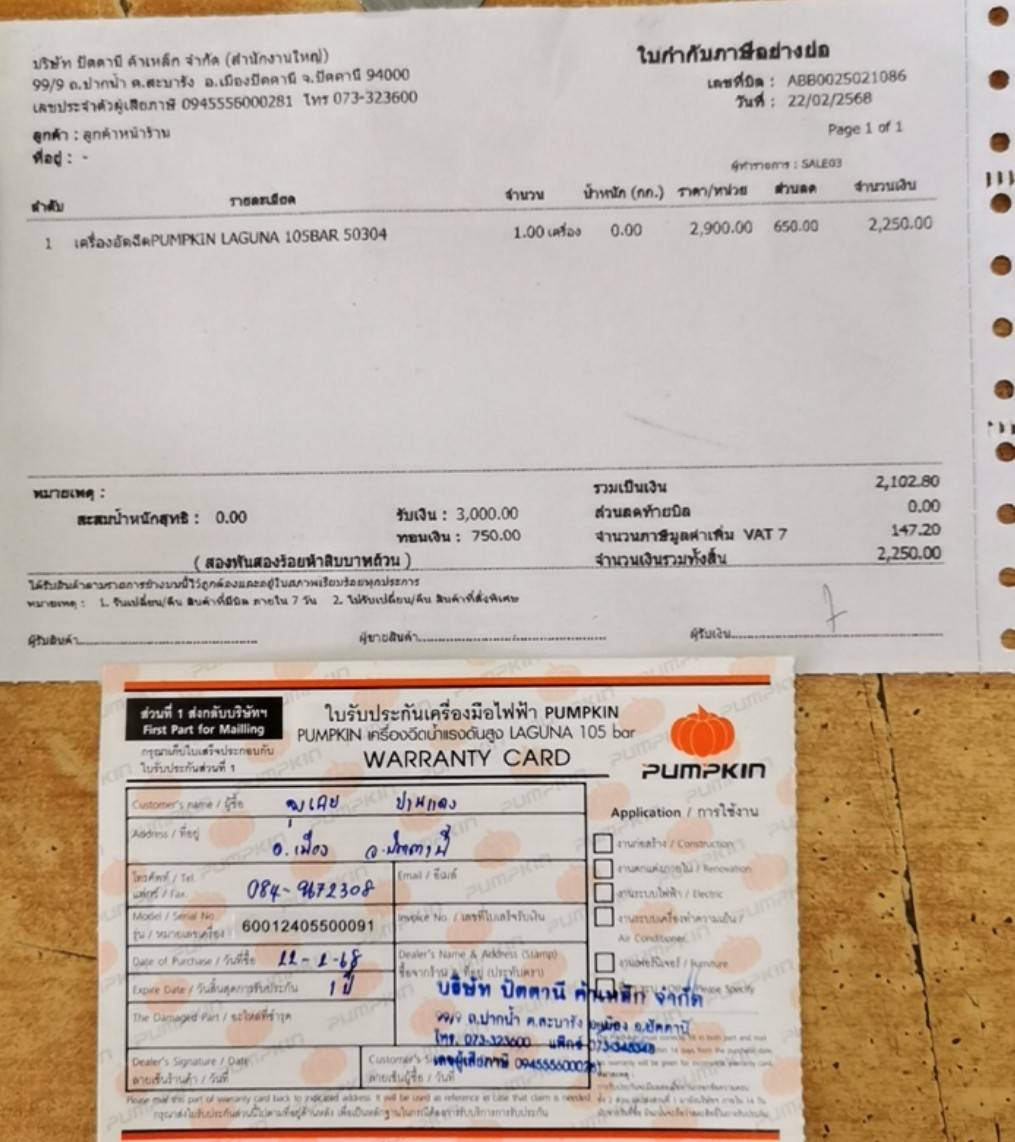 บริษัท ปัตตานี ค้าเหล็ก จำกัด (สำนักงานใหญ่)
99/9 ถ.ปากน้ำ ต.สะบารัง อ.เมืองปัตตานี จ.ปัตตานี 94000
เลขประจำตัวผู้เสียภาษี 0945556000281 โทร 073-323600
ลูกค้า : ลูกค้าหน้าร้าน
ที่อยู่ : -
ใบกำกับภาษีอย่างย่อ
เลขที่บิล : ABB0025021086
วันที่ : 22/02/2568
Page 1 of 1
ผู้ทำรายการ : SALE03
ลำดับ รายละเอียด จำนวน น้ำหนัก (กก.) ราคา/หน่วย ส่วนลด จำนวนเงิน
1 เครื่องอัดฉีดPUMPKIN LAGUNA 105BAR 50304 1.00 เครื่อง 0.00 2,900.00 650.00 2,250.00
หมายเหตุ : รวมเป็นเงิน 2,102.80
สะสมน้ำหนักสุทธิ : 0.00 รับเงิน : 3,000.00 ส่วนลดท้ายบิล 0.00
ทอนเงิน : 750.00 จำนวนภาษีมูลค่าเพิ่ม VAT 7 147.20
( สองพันสองร้อยห้าสิบบาทถ้วน ) จำนวนเงินรวมทั้งสิ้น 2,250.00
ได้รับสินค้าตามรายการข้างบนนี้ไว้ถูกต้องและอยู่ในสภาพเรียบร้อยทุกประการ
หมายเหตุ : 1. รับเปลี่ยน/คืน สินค้าที่มีบิล ภายใน 7 วัน 2. ไม่รับเปลี่ยน/คืน สินค้าที่สั่งพิเศษ
ผู้รับสินค้า ผู้ขายสินค้า ผู้รับเงิน
ส่วนที่ 1 ส่งกลับบริษัทฯ
First Part for Mailling
กรุณาเก็บใบเสร็จประกอบกับ
ใบรับประกันส่วนที่ 1
ใบรับประกันเครื่องมือไฟฟ้า PUMPKIN
PUMPKIN เครื่องฉีดน้ำแรงดันสูง LAGUNA 105 bar
WARRANTY CARD
PUMPKIN
Customer's name / ผู้ซื้อ ปานแดง
Address / ที่อยู่ อ.เมือง จ.ปัตตานี
โทรศัพท์ / Tel. 084-9672308
แฟกซ์ / Fax.
Email / อีเมล์
Model / Serial No. 60012405500091
รุ่น / หมายเลขเครื่อง
Invoice No. / เลขที่ใบเสร็จรับเงิน
Date of Purchase / วันที่ซื้อ 22-2-68
Expire Date / วันสิ้นสุดการรับประกัน 1 ปี
The Damaged Part / อะไหล่ที่ชำรุด
Dealer's Name & Address (Stamp)
ชื่อจากร้าน & ที่อยู่ (ประทับตรา)
บริษัท ปัตตานี ค้าเหล็ก จำกัด
99/9 ถ.ปากน้ำ ต.สะบารัง อ.เมือง จ.ปัตตานี
โทร. 073-323600 แฟกซ์
เลขผู้เสียภาษี 0945556000281
Dealer's Signature / Date
ลายเซ็นร้านค้า / วันที่
ลายเซ็นผู้ซื้อ / วันที่
Application / การใช้งาน
งานก่อสร้าง / Construction
งานตกแต่งภายใน / Renovation
งานระบบไฟฟ้า / Electric
งานระบบเครื่องทำความเย็น /
Air Conditioner
งานเฟอร์นิเจอร์ / Furniture
Please Specify
Please mail this part of warranty card back to indicated address. It will be used as reference in case that claim is needed.
กรุณาส่งใบรับประกันส่วนนี้ไปตามที่อยู่ด้านหลัง เพื่อเป็นหลักฐานในกรณีต้องการรับบริการการรับประกัน